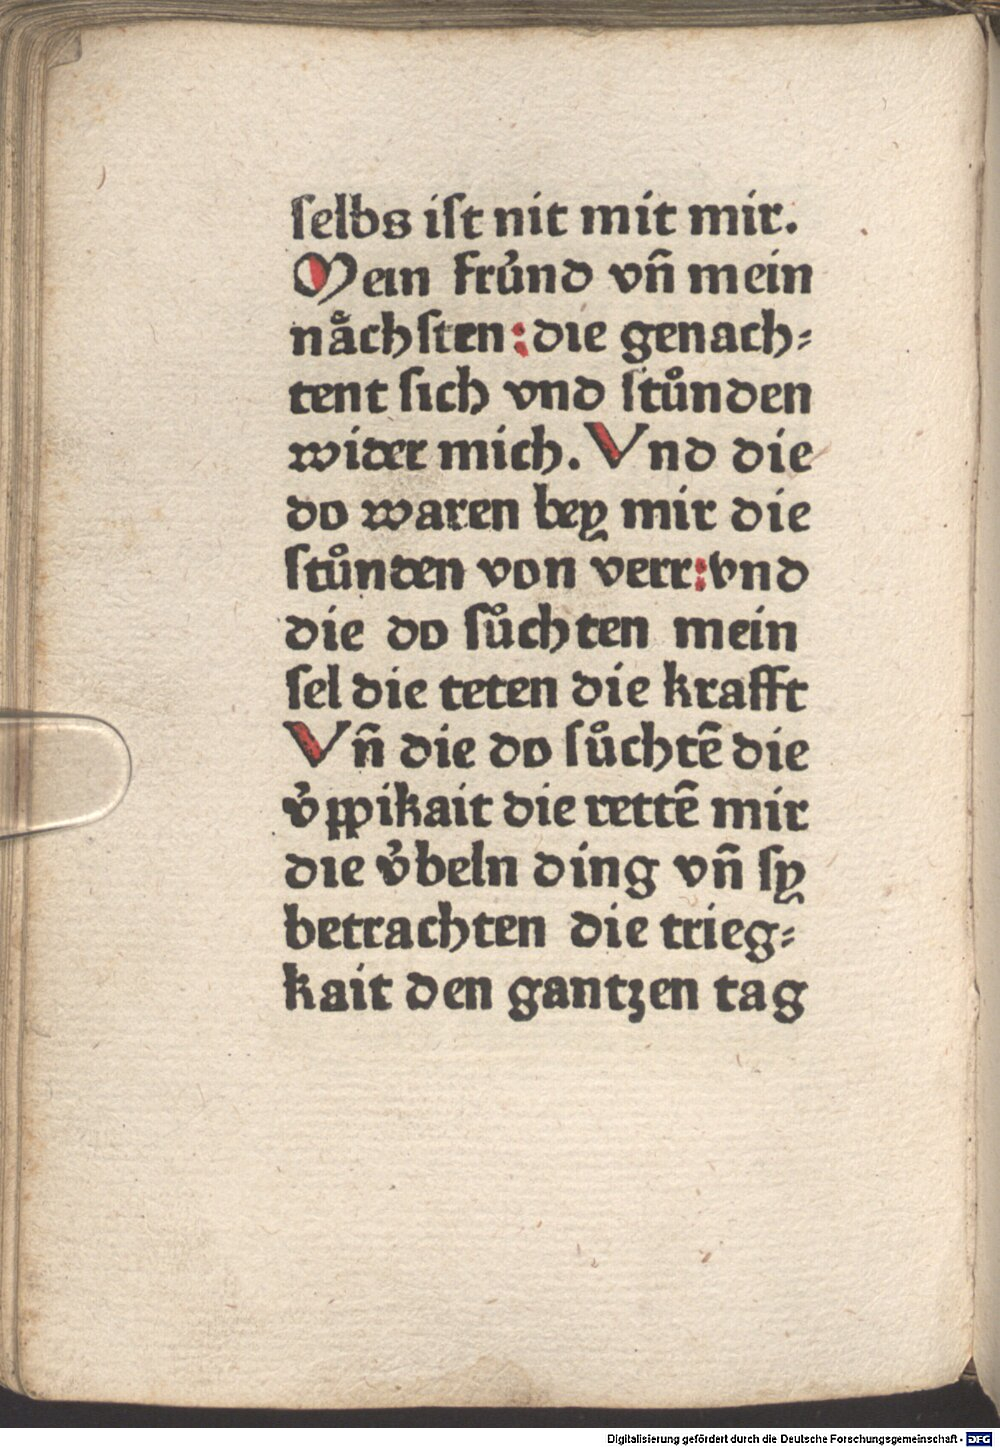 ſelbs iſt nit mit mir.
Mein fru̇nd vñ mein
nåchſten : die genach⸗
tent ſich vnd ſtůnden
wider mich. Vnd die
do waren bey mir die
ſtůnden von verr : vnd
die do ſůchten mein
ſel die teten die krafft
Vñ die do ſůchtē die
v̇ppikait die rettē mir
die v̇beln ding vñ ſy
betrachten die trieg⸗
kait den gantzen tag
Digitalisierung gefördert durch die Deutsche Forschungsgemeinschaft - DFG